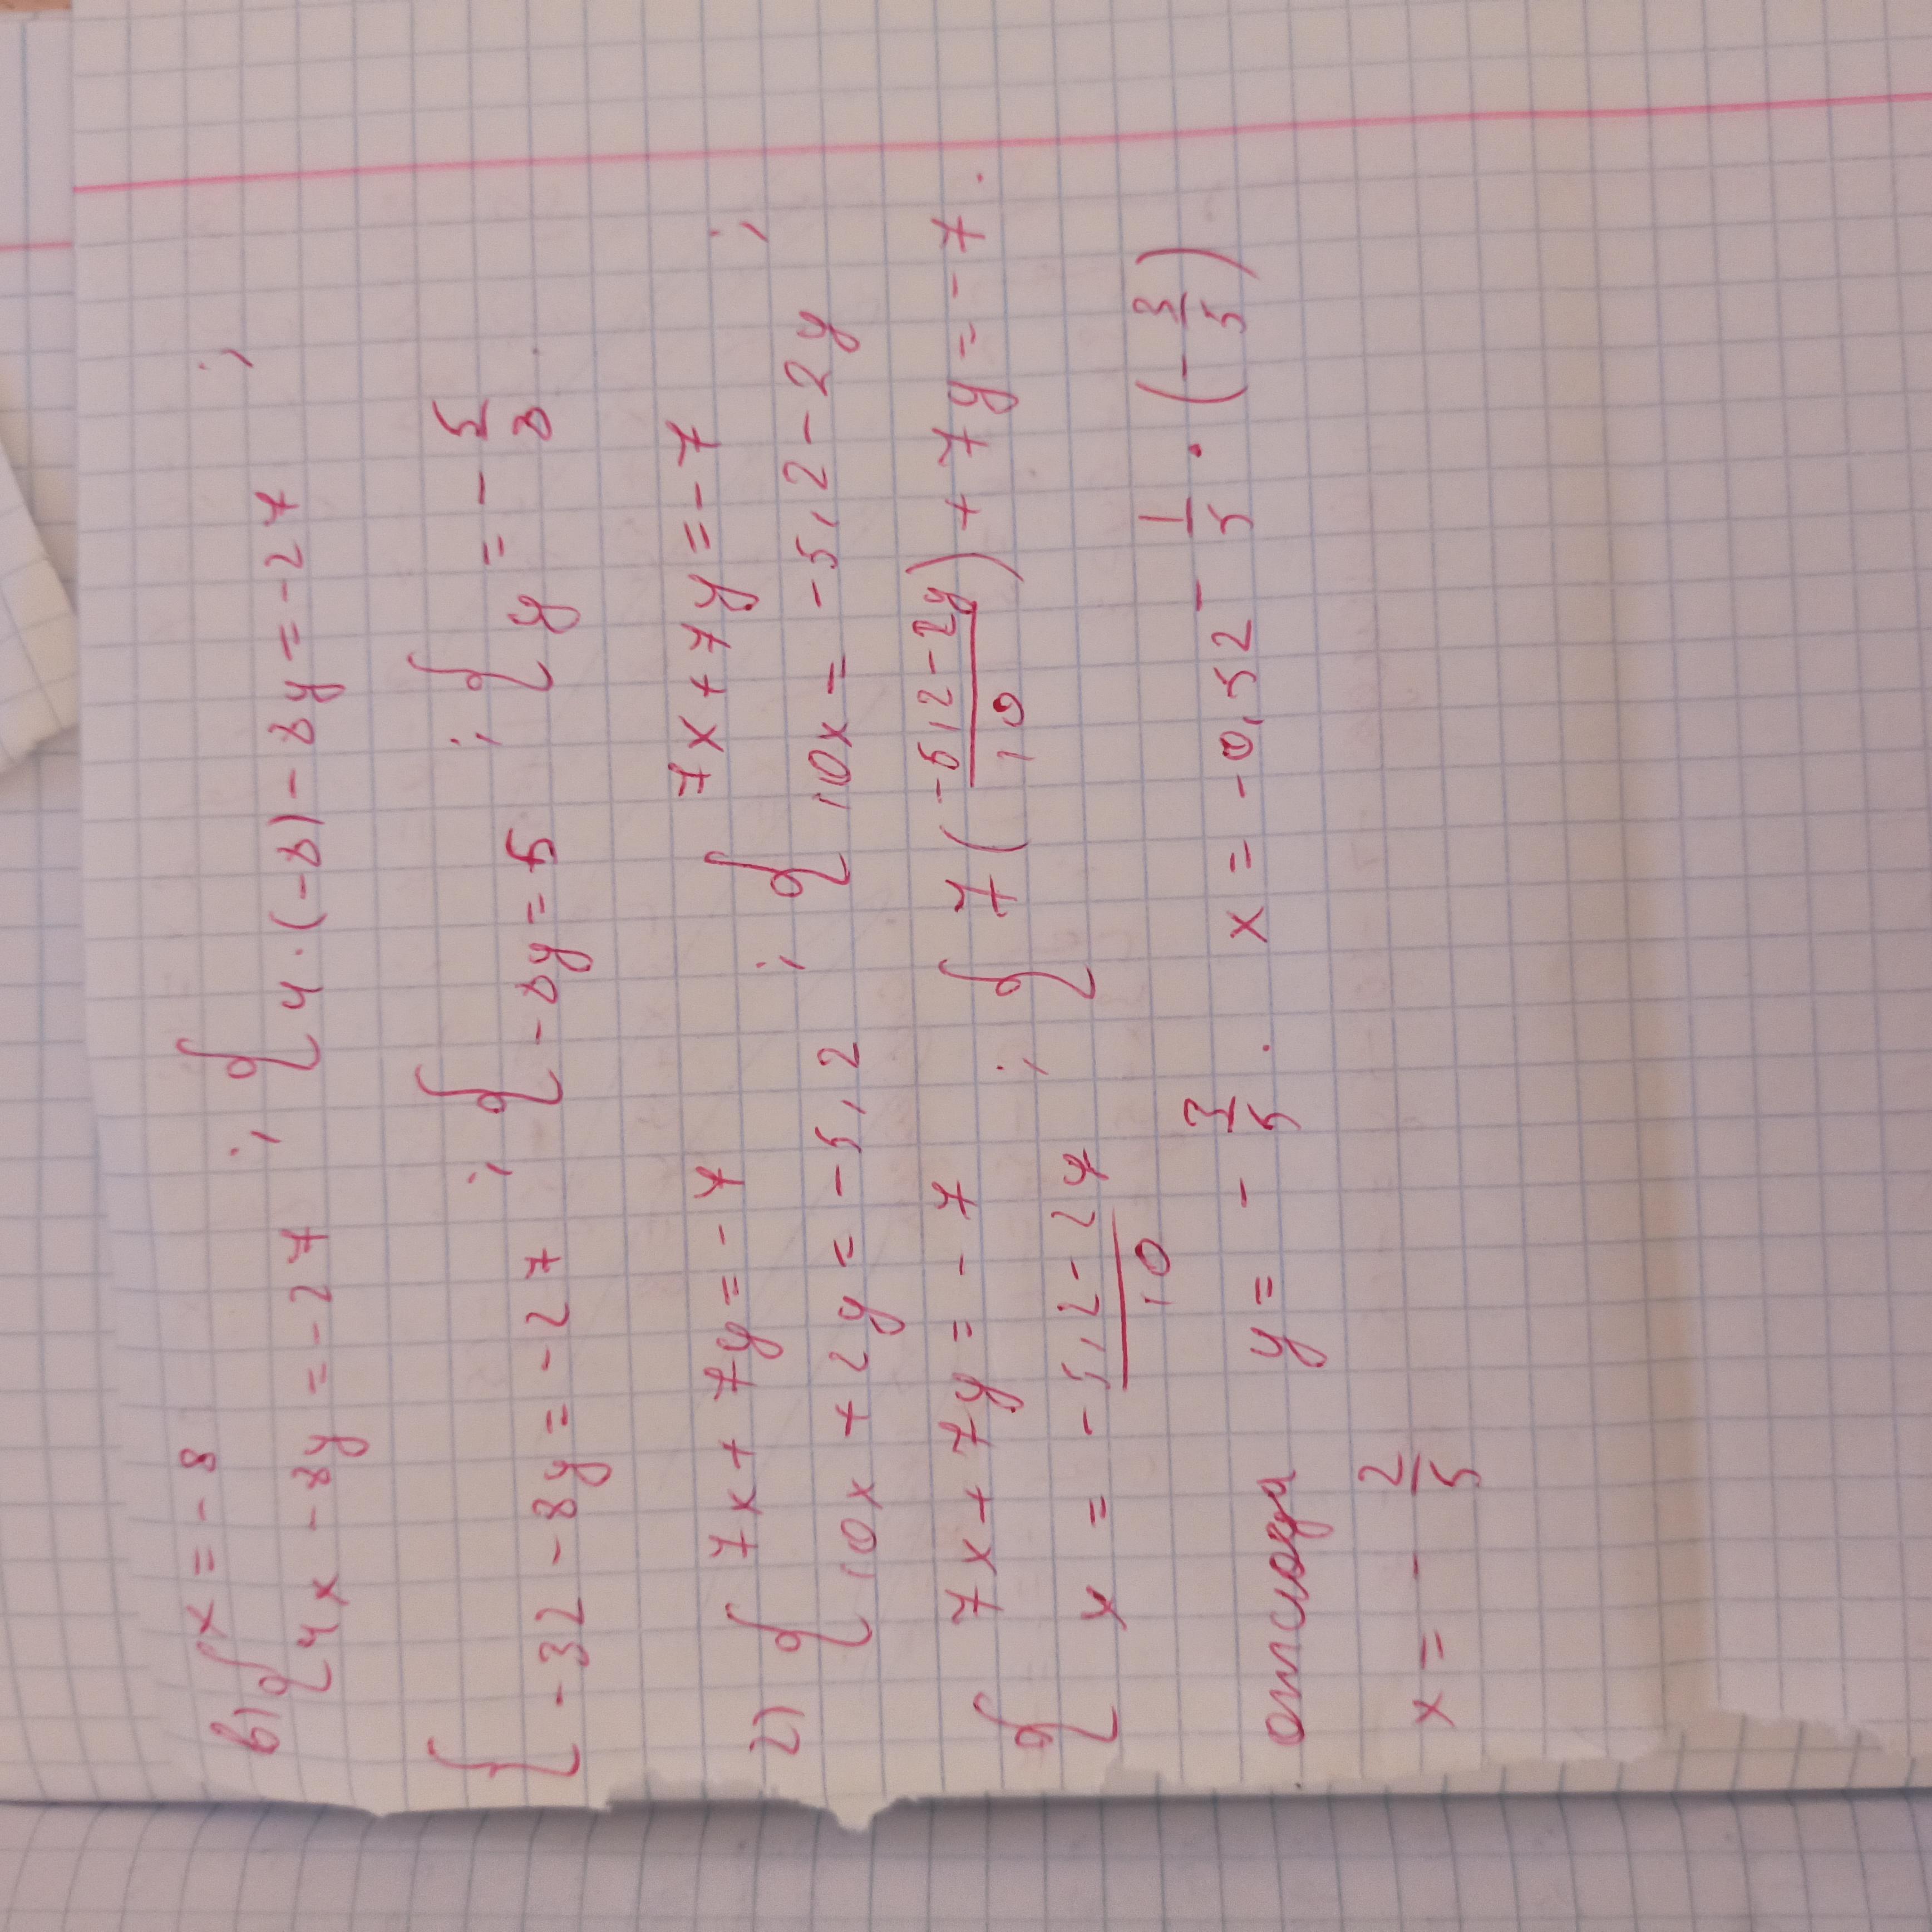 в) { x = -8 ; {
4x - 8y = -27 4·(-8) - 8y = -27 ;
{ -32 - 8y = -27 ; { -8y = 5 ; { y = -5/8
г) { 7x + 7y = -7 ; { 7x + 7y = -7 ;
10x + 2y = -5,2 10x = -5,2 - 2y
{ 7x + 7y = -7 ; { 7(-5,2-2y/10) + 7y = -7.
x = -5,2-2y/10
отсюда y = -3/5. x = -0,52 - 1/5 · (-3/5)
x = -2/5